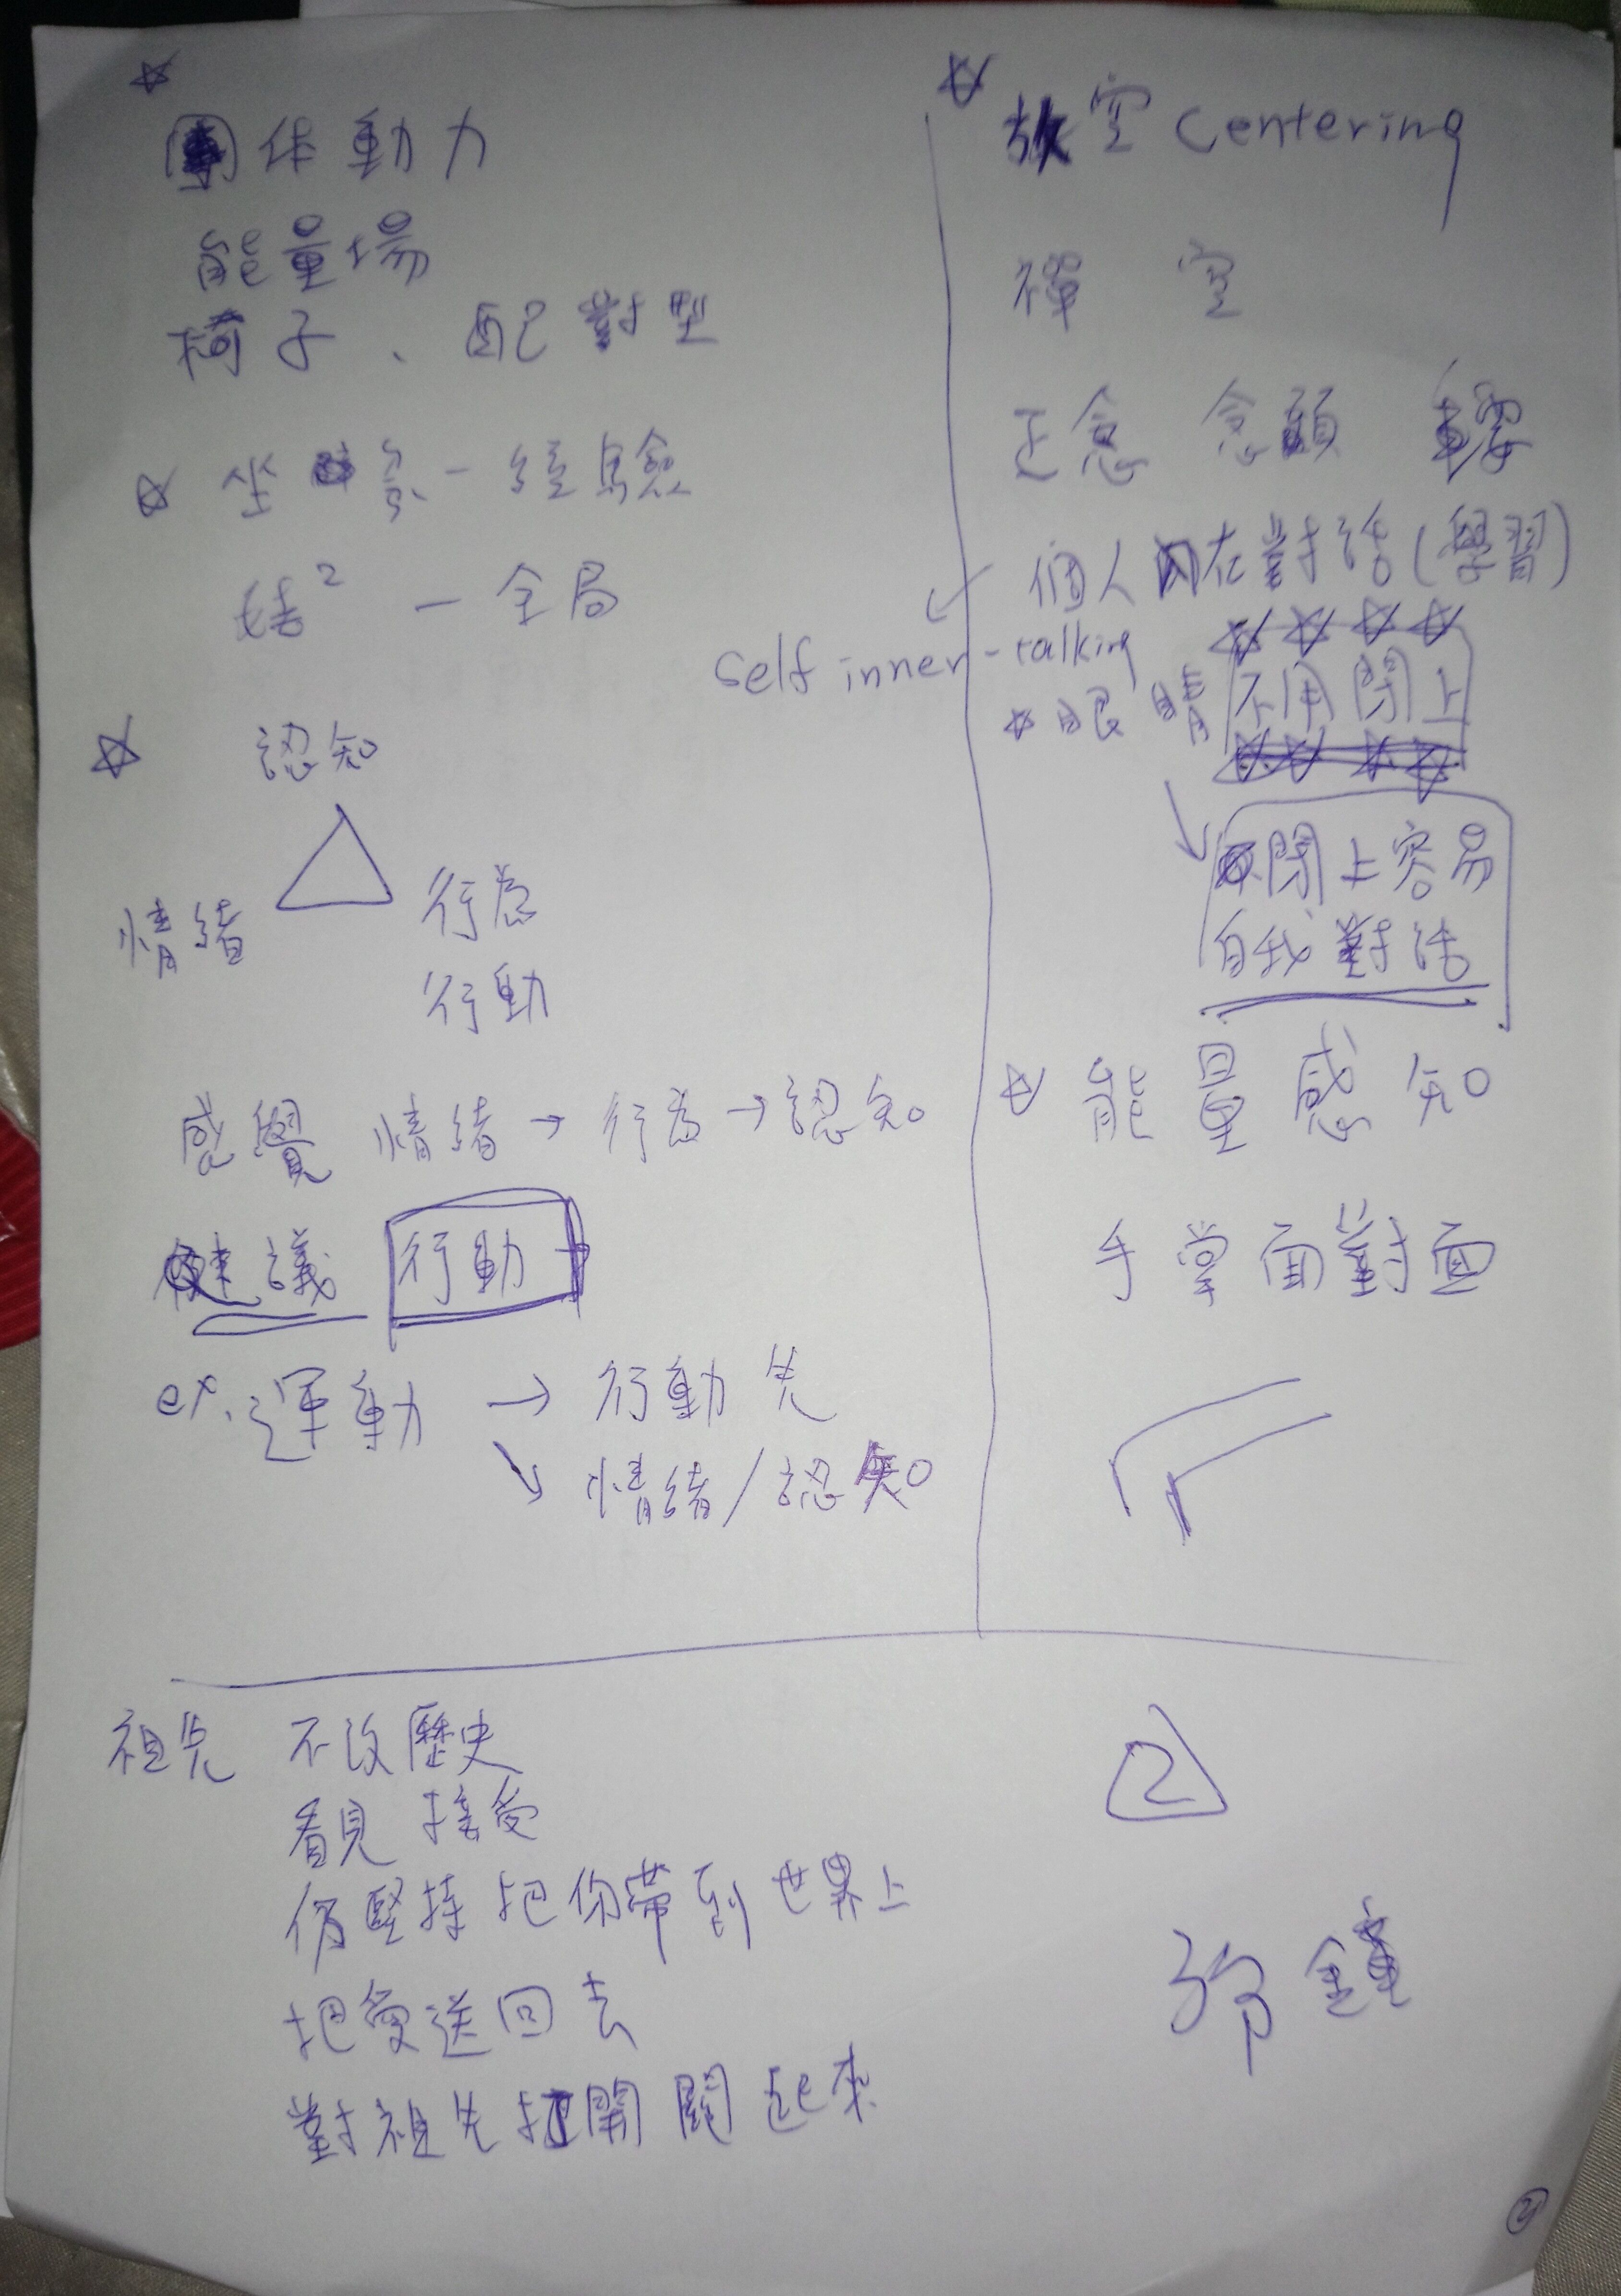 團体動力
能量場
椅子、配對型
坐 - 經驗
2 - 全局
認知
情緒 行為
行動
感覺 情緒→行為→認知
建議 行動
ex. 運動 → 行動先
↘ 情緒/認知
放空 Centering
禪 空
正念 念頭
個人內在對話(學習)
self inner-talking
眼睛 不用閉上
閉上容易
自我對話
能量感知
手掌面對面
祖先 不改歷史
看見 接受
仍堅持把你帶到世界上
把愛送回去
對祖先 開關起來
2
鐘
2